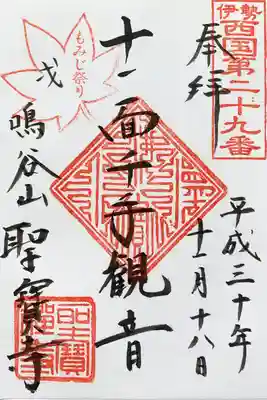 伊勢
西国第二十九番
奉拝
平成三十年
十一月十八日
十一面千手観音
もみじ祭り
戌
鳴谷山
聖寳寺